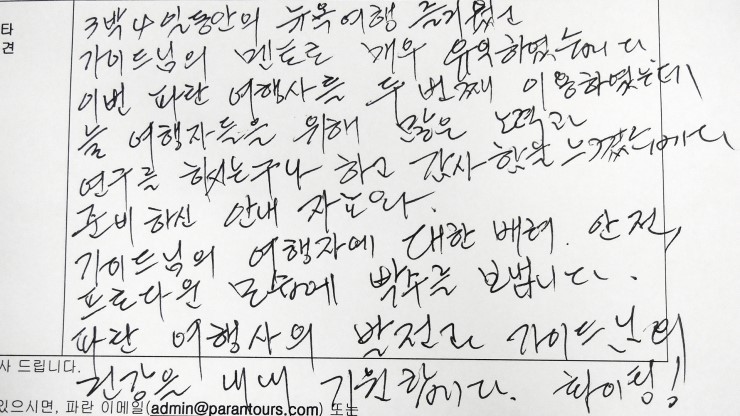 타
견
3박4일동안의 뉴욕여행 즐거웠고
가이드님의 멘토르 매우 유익하였습니다
이번 파란 여행사를 두 번째 이용하였는데
늘 여행자들을 위해 많은 노력과
연구를 하시는구나 하고 감사함을 느꼈습니다
준비하신 안내 자료와.
가이드님의 여행자에 대한 배려. 안전,
프로다운 모습에 박수를 보냅니다.
파란 여행사의 발전과 가이드님의
건강을 내내 기원합니다. 화이팅!
사 드립니다.
있으시면, 파란 이메일(admin@parantours.com) 또는